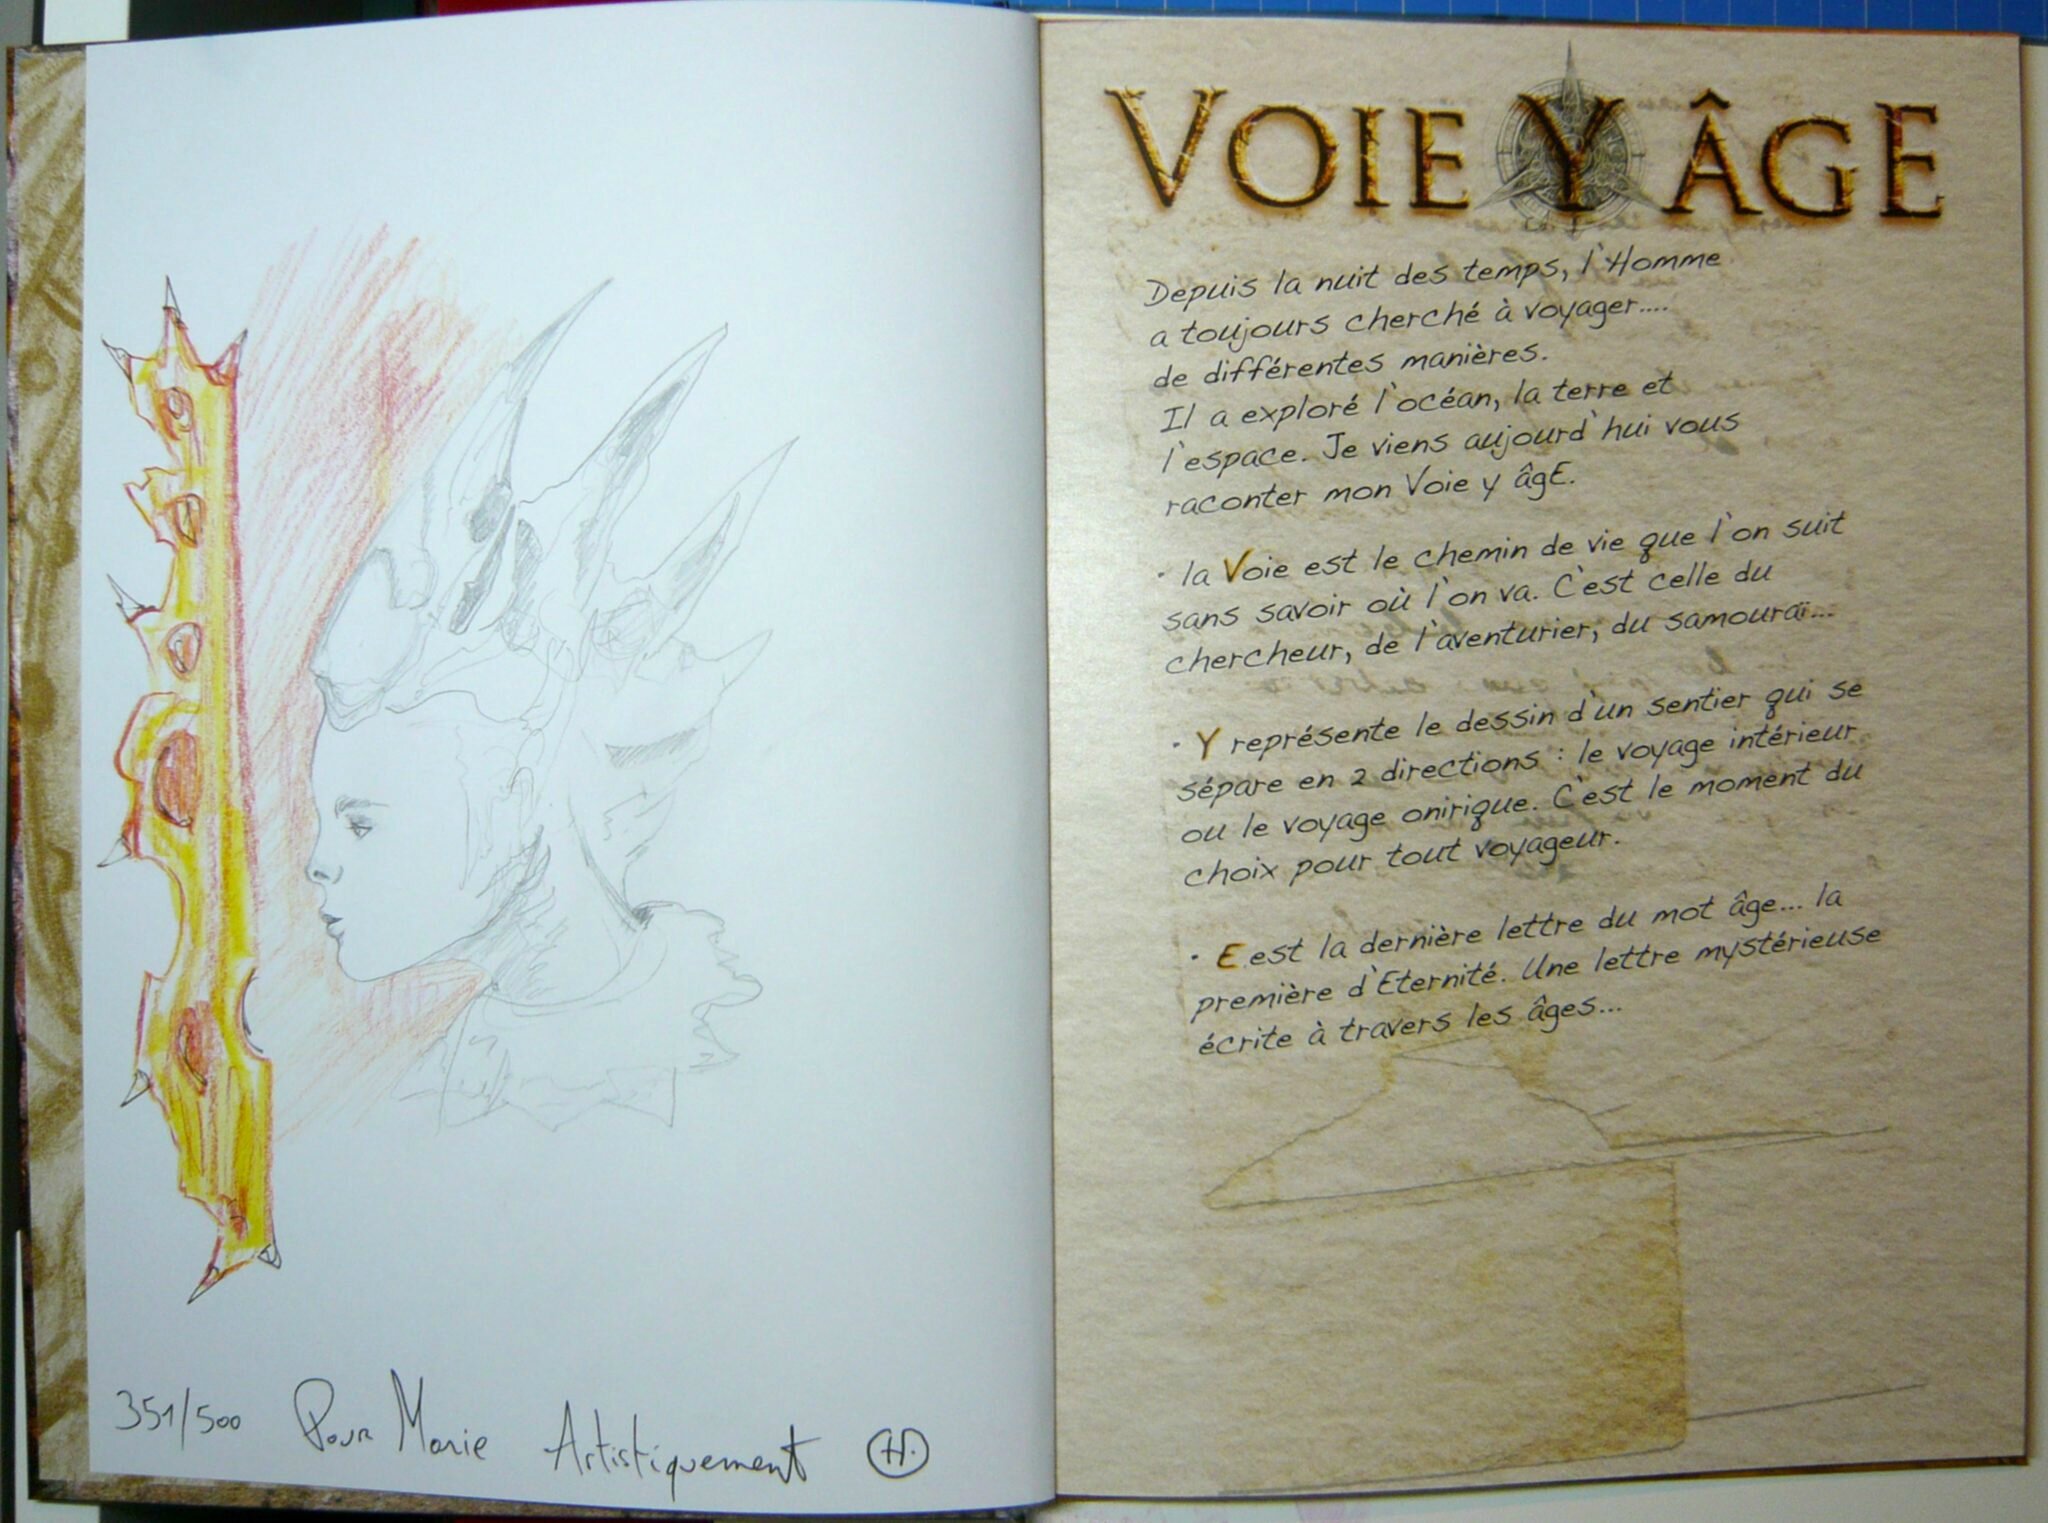 351/500 Pour Marie Artistiquement H.
VOIE Y ÂGE
Depuis la nuit des temps, l'Homme
a toujours cherché à voyager....
de différentes manières.
Il a exploré l'océan, la terre et
l'espace. Je viens aujourd'hui vous
raconter mon Voie y âgE.
· la Voie est le chemin de vie que l'on suit
sans savoir où l'on va. C'est celle du
chercheur, de l'aventurier, du samouraï...
· Y représente le dessin d'un sentier qui se
sépare en 2 directions : le voyage intérieur
ou le voyage onirique. C'est le moment du
choix pour tout voyageur.
· E est la dernière lettre du mot âge... la
première d'Eternité. Une lettre mystérieuse
écrite à travers les âges...